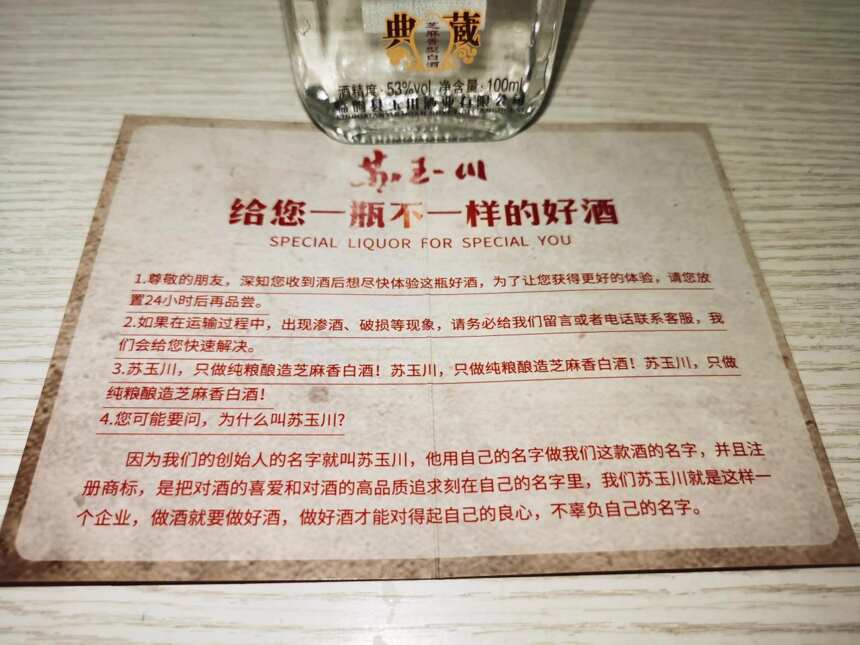 典藏
芝麻香型白酒
酒精度·53%vol 净含量·100ml
临朐县玉川酒业有限公司
苏玉川
给您一瓶不一样的好酒
SPECIAL LIQUOR FOR SPECIAL YOU
1.尊敬的朋友，深知您收到酒后想尽快体验这瓶好酒，为了让您获得更好的体验，请您放
置24小时后再品尝。
2.如果在运输过程中，出现渗酒、破损等现象，请务必给我们留言或者电话联系客服，我
们会给您快速解决。
3.苏玉川，只做纯粮酿造芝麻香白酒！苏玉川，只做纯粮酿造芝麻香白酒！苏玉川，只做
纯粮酿造芝麻香白酒！
4.您可能要问，为什么叫苏玉川?
因为我们的创始人的名字就叫苏玉川，他用自己的名字做我们这款酒的名字，并且注
册商标，是把对酒的喜爱和对酒的高品质追求刻在自己的名字里，我们苏玉川就是这样一
个企业，做酒就要做好酒，做好酒才能对得起自己的良心，不辜负自己的名字。